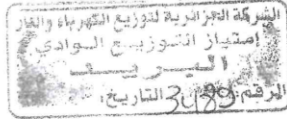 الشركة الجزائرية لتوزيع الكهرباء والغاز
إمتياز التوزيع الوادي
البريد
الرقم: 3489 التاريخ: